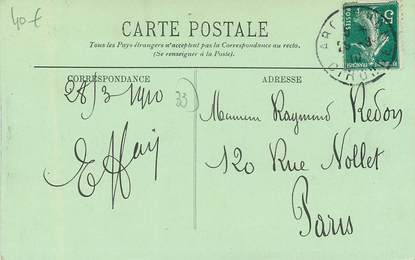 40 €
CARTE POSTALE
Tous les Pays étrangers n'acceptent pas la Correspondance au recto.
(Se renseigner à la Poste).
CORRESPONDANCE
ADRESSE
28/3 1910
33
Monsieur Raymond Redon
120 Rue Nollet
Paris
5
POSTES
GIRONDE